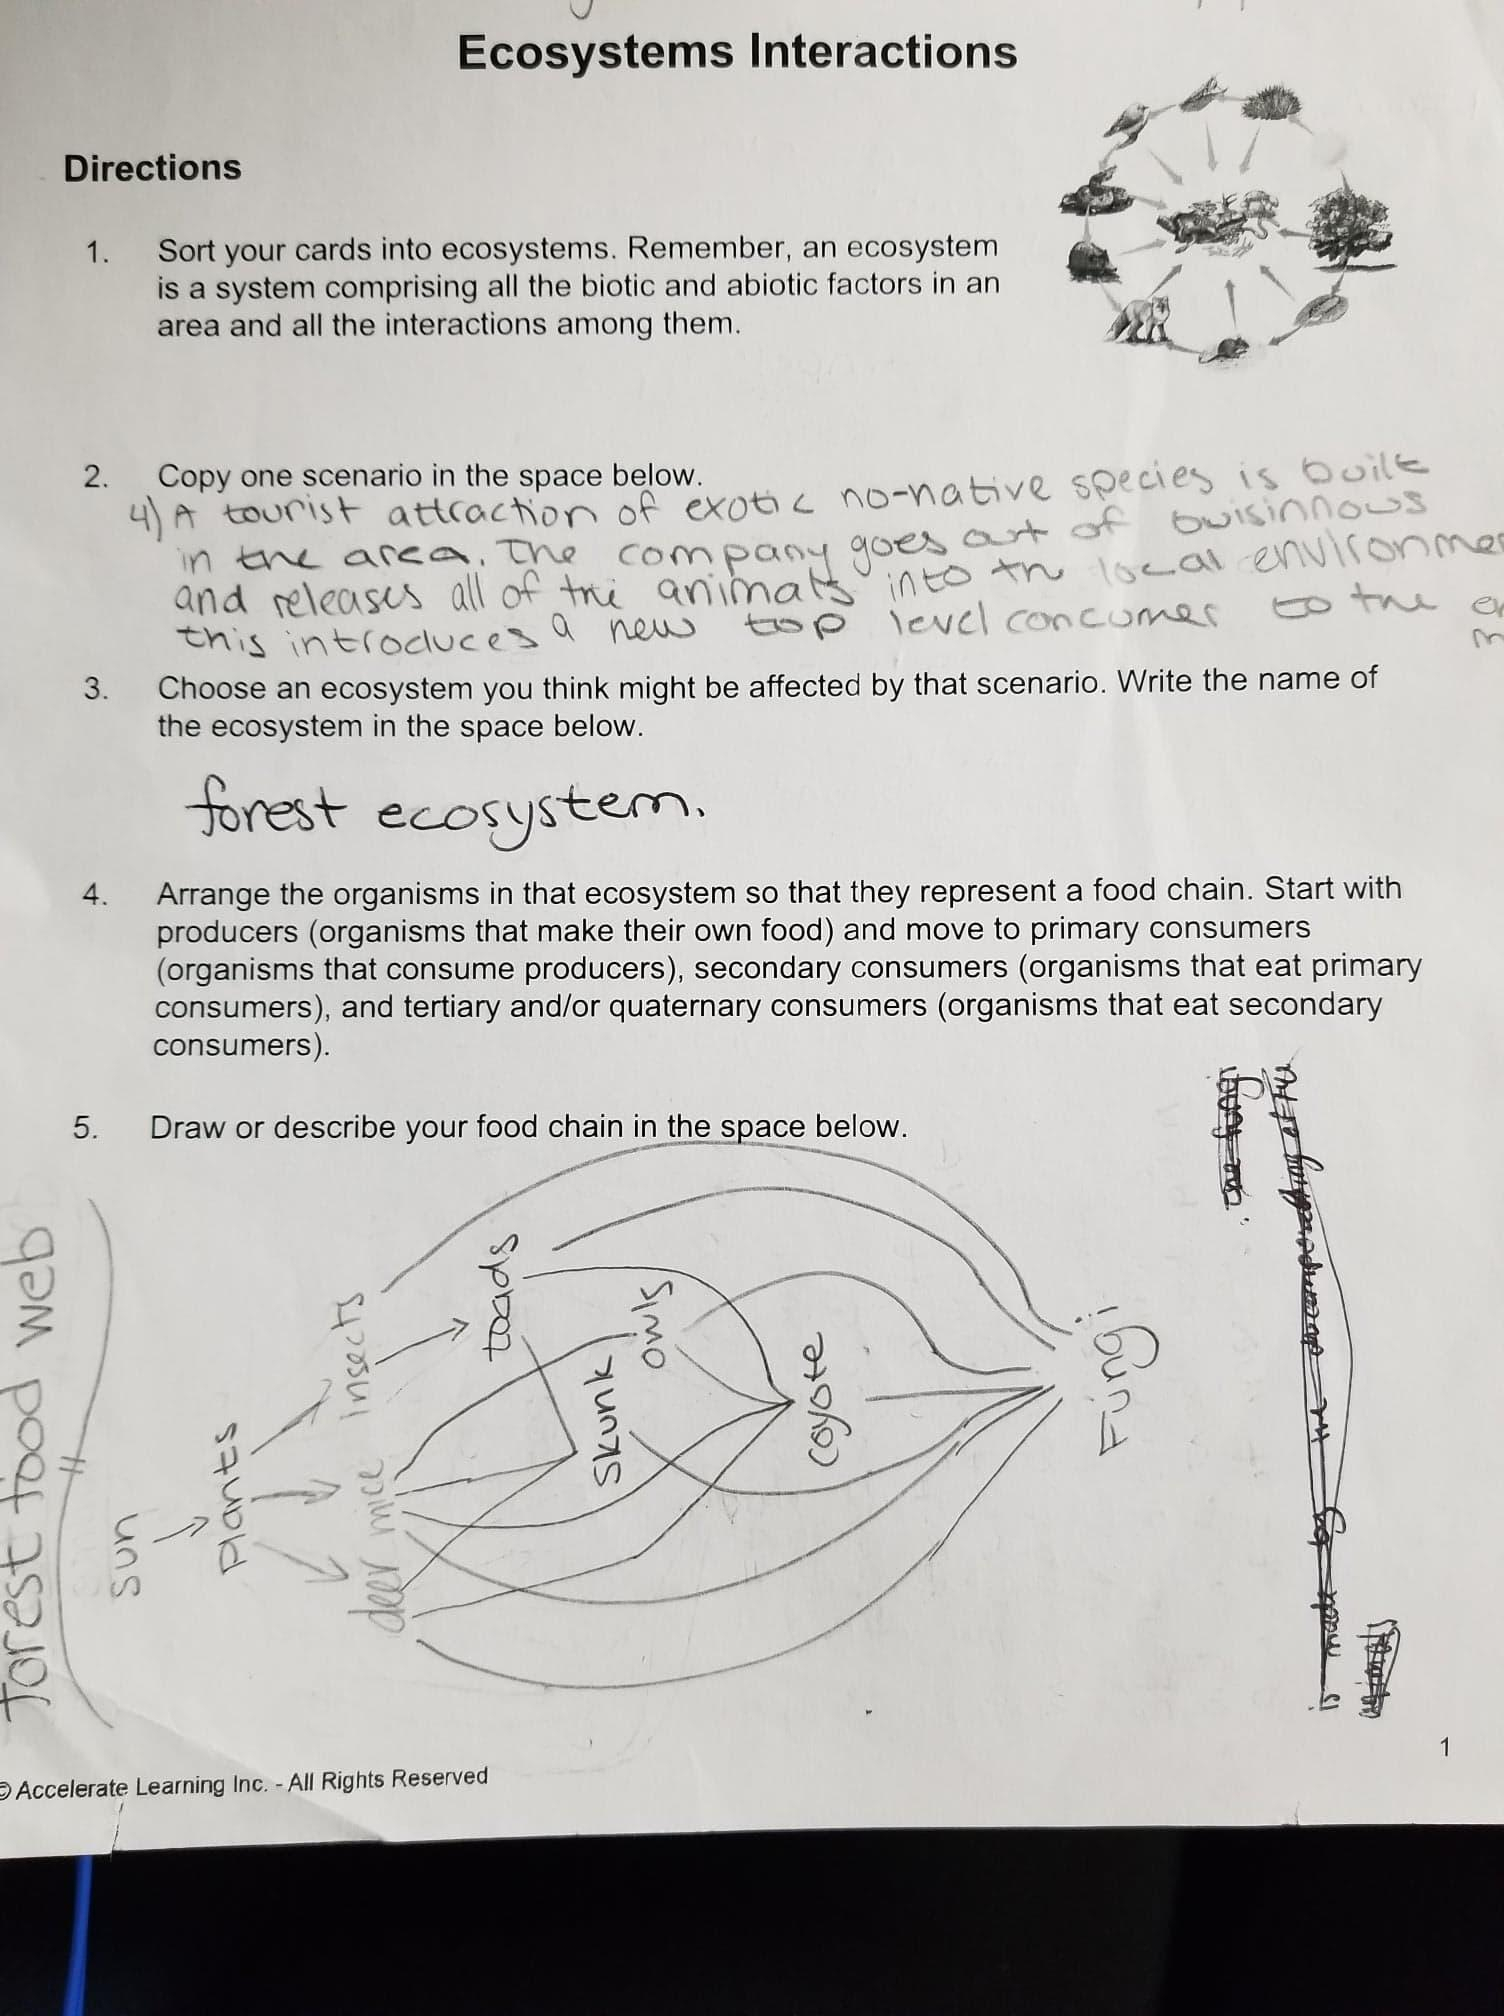 Ecosystems Interactions
Directions
1. Sort your cards into ecosystems. Remember, an ecosystem
is a system comprising all the biotic and abiotic factors in an
area and all the interactions among them.
2. Copy one scenario in the space below.
4) A tourist attraction of exotic no-native species is built
in the area. The company goes out of bwisinnows
and releases all of the animals into the local environmen
this introduces a new top level concumer to the en
3. Choose an ecosystem you think might be affected by that scenario. Write the name of
the ecosystem in the space below.
forest ecosystem.
4. Arrange the organisms in that ecosystem so that they represent a food chain. Start with
producers (organisms that make their own food) and move to primary consumers
(organisms that consume producers), secondary consumers (organisms that eat primary
consumers), and tertiary and/or quaternary consumers (organisms that eat secondary
consumers).
5. Draw or describe your food chain in the space below.
forest food web
sun
Plants
deer mice insects
toads
skunk owls
coyote
Fungi
is made by the decomposing of the
the fungi
© Accelerate Learning Inc. - All Rights Reserved
1